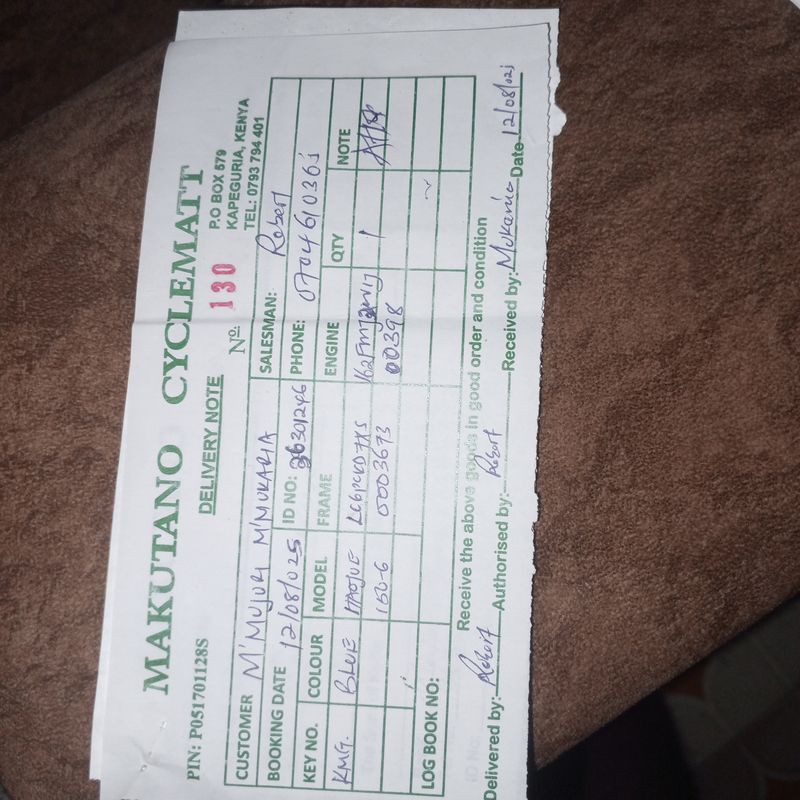 MAKUTANO CYCLEMATT
PIN: P051701128S
DELIVERY NOTE
P.O BOX 579
KAPEGURIA, KENYA
TEL: 0793 794 401
Nº. 130
CUSTOMER M'MUJURI M'MUKARIA SALESMAN: Robert
BOOKING DATE 12/08/025 ID NO: 36301246 PHONE:
KEY NO. COLOUR MODEL FRAME ENGINE QTY NOTE
KMG. BLUE HAOJUE 1
150-6 0003693 00398
LOG BOOK NO:
Receive the above goods in good order and condition
Delivered by: Robert Authorised by: Robert Received by: Mukaria Date 12/08/025